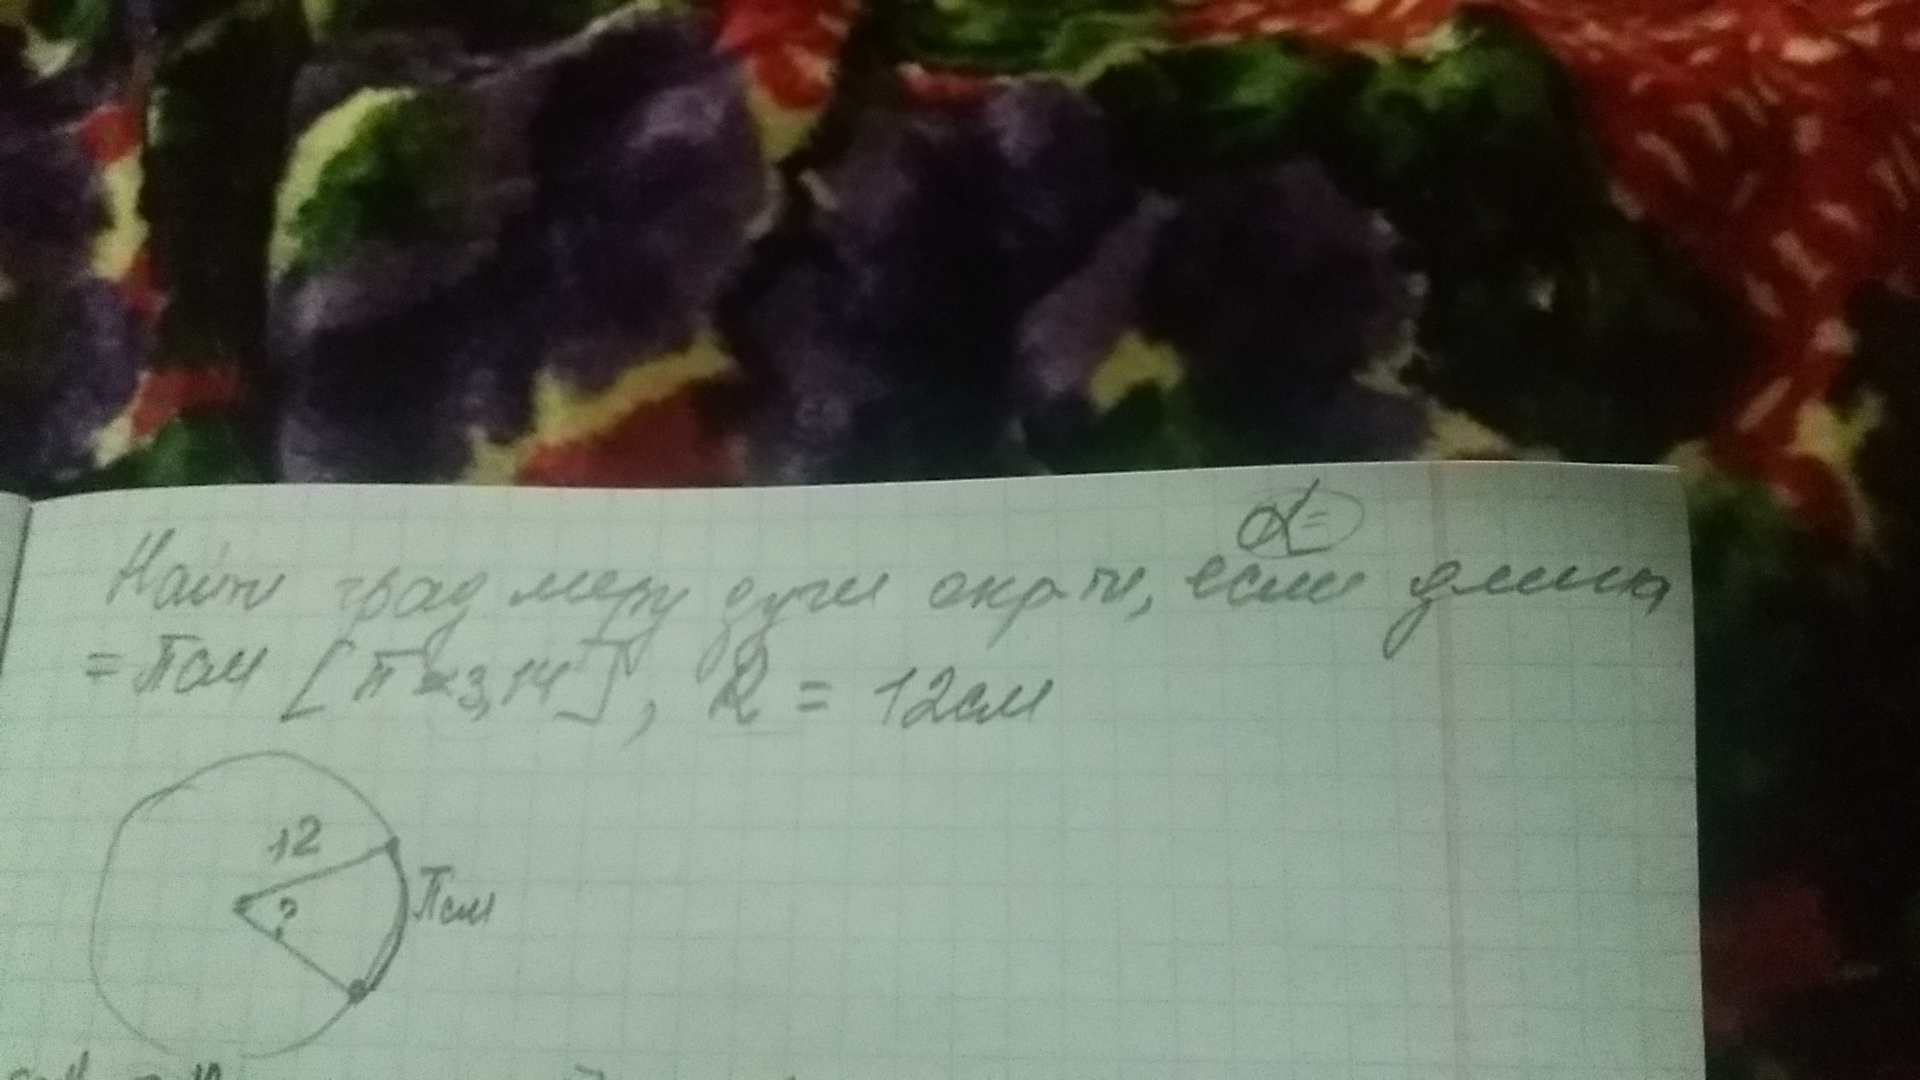 α =
Найти град меру дуги окр-ти, если длина
= π см [π ≈ 3,14], R = 12 см
12
?
π см